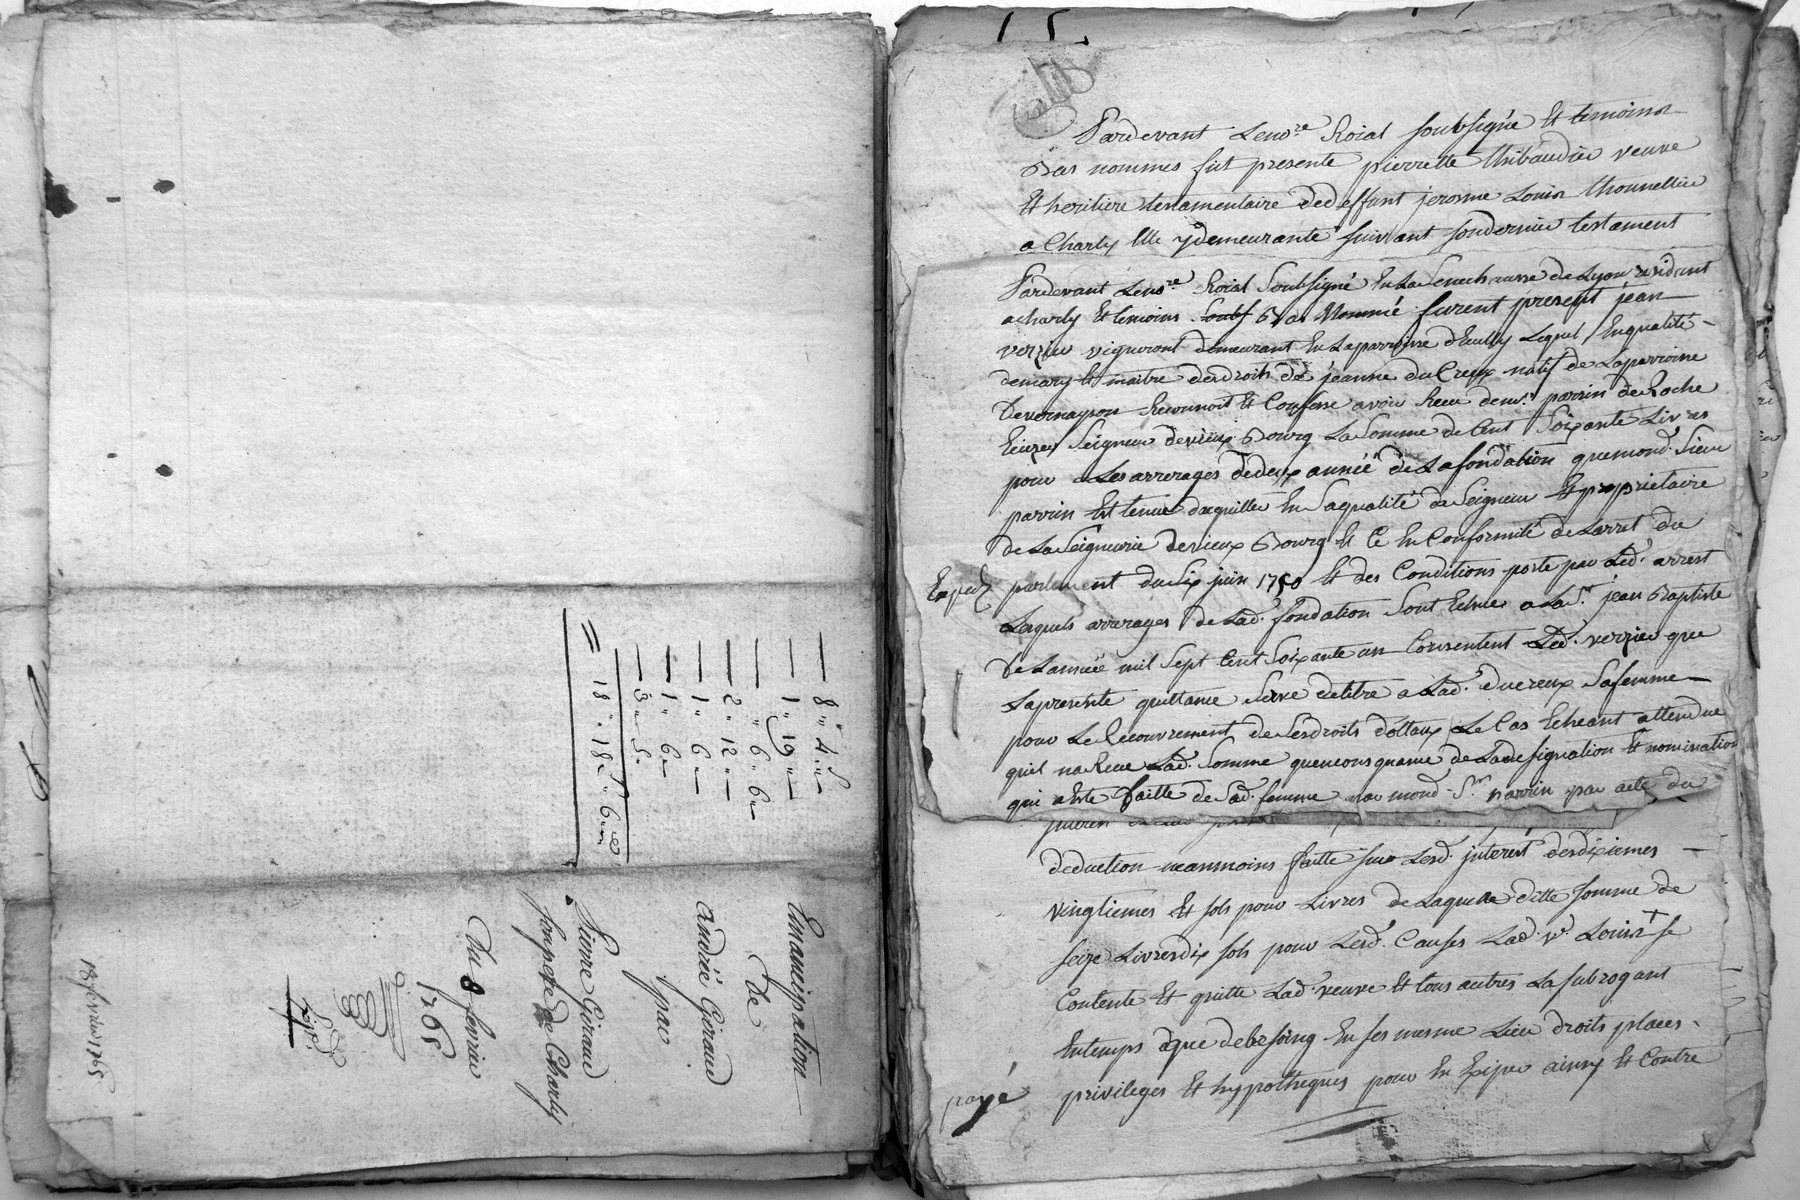 8 " 4 "
1 " 19 "
" 6 " 6
2 " 12 "
1 " 6
1 " 6
3 " 5
18 " 18 " 6
Emancipation
de
andré Giraud
par
Pierre Giraud
son pere de Charly
Du 8 fevrier
1765
Exp.
18 fevrier 1765
Pardevant Le no.re Roial soubsigné Et temoins
Bas nommes fut presente pierrette thibaudier veuve
Et heritiere testamentaire de deffunt jerosme Louis thonnellier
a Charly Elle y demeurante suivant son dernier testament
Pardevant Le no.re Roial Soubsigné En La Senechaussé de Lyon residant
a charly Et temoins Soubs Bas Nommé furent present jean
verzieu vigneront demeurant En La parroisse d'Eully Lequel En qualité
de mary Et maitre des droits de jeanne du Creux natif de La parroisse
de vernayson Reconnoit Et Confesse avoir Receu de m.r parrin de Roche
Seigneur de vieux Bourg La Somme de Cent Soixante Livres
pour Les arrerages de deux année de La fondation que mond. Sieur
parrin Est tenue daquitter En Sa qualité de Seigneur Et proprietaire
de La Seigneurie de vieux Bourg Et Ce En Conformité de Larret du
Exped parlement du Six juin 1750 Et des Conditions porté par Led. arrest
Lesquels arrerages de Lad. fondation Sont Echues a La S.t jean Baptiste
de Lannée mil Sept Cent Soixante un Consentent Led. verzieu que
La presente quittance Serve de titre a Lad. ducreux Sa femme
pour Le Recouvrement de Ses droits dottaux Le Cas Echeant attendue
quil na Receu Lad. Somme quen consequance de La designation Et nomination
qui a Eté faitte de Sad. femme par mond. S.r parrin par acte du
deduction neanmoins faitte sur Lesd. interest des dixiemes
vingtiemes Et sols pour Livres de Laquelle ditte somme de
seize Livres dix sols pour Lesd. Causes Lad. v.e Louis + se
Contente Et quitte Lad. veuve Et tous autres La subrogant
En temps que de besoing En ses mesme Lieu droits places
payé privileges Et hypotheques pour En Exiper ainsy Et Contre